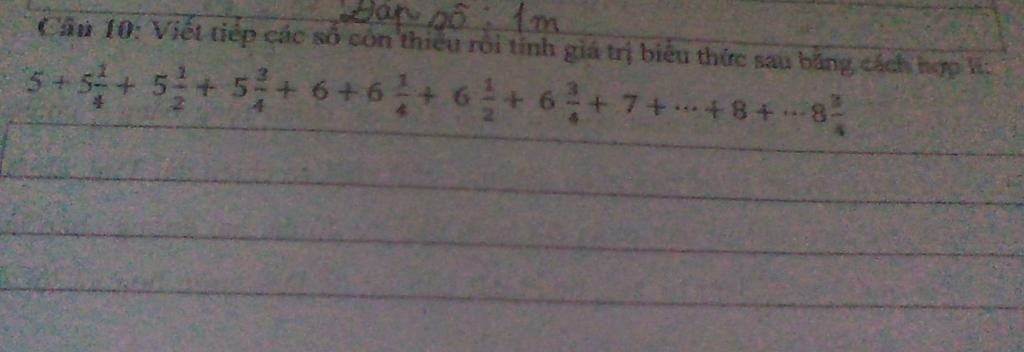 Đáp số : 1m
Câu 10: Viết tiếp các số còn thiếu rồi tính giá trị biểu thức sau bằng cách hợp lí:
5 + 5 1/4 + 5 1/2 + 5 3/4 + 6 + 6 1/4 + 6 1/2 + 6 3/4 + 7 + ··· + 8 + ··· 8 3/4